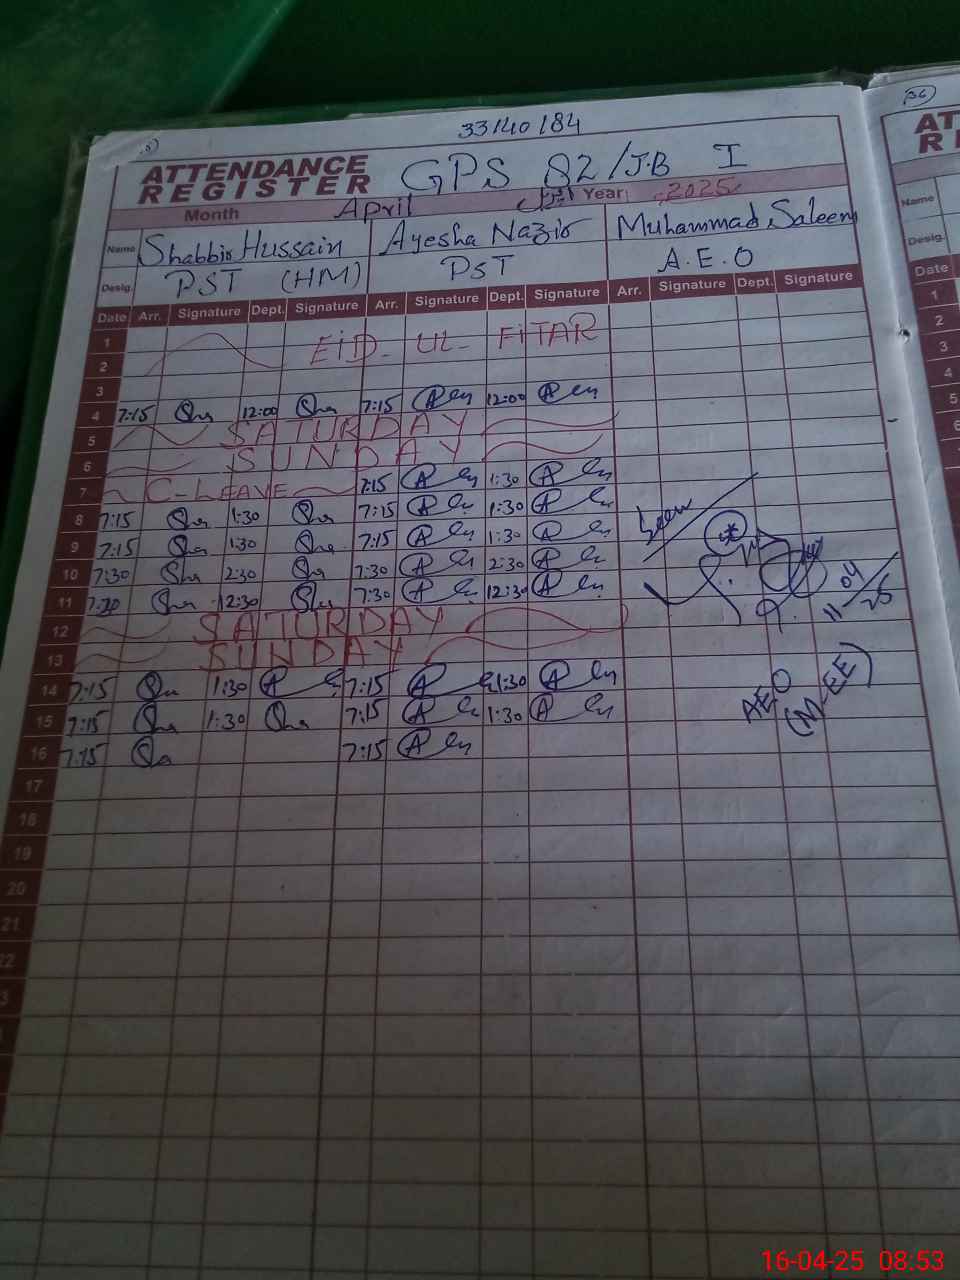 33140184
ATTENDANCE REGISTER GPS 82/J.B I
Month April اپریل Year: 2025
Name Shabbir Hussain Ayesha Nazir Muhammad Saleem
Desig. PST (HM) PST A.E.O
Date Arr. Signature Dept. Signature Arr. Signature Dept. Signature Arr. Signature Dept. Signature
1
2 EID-UL-FITAR
3
4 7:15 12:00 7:15 12:00
5 SATURDAY
6 SUNDAY
7 C-LEAVE 7:15 1:30
8 7:15 1:30 7:15 1:30
9 7:15 1:30 7:15 1:30
10 7:30 2:30 7:30 2:30
11 7:30 12:30 7:30 12:30
Seen
11/04/25
12 SATURDAY
13 SUNDAY
14 7:15 1:30 7:15 1:30
15 7:15 1:30 7:15 1:30
AEO
(M-EE)
16 7:15 7:15
17
18
19
20
21
22
3
(36)
ATT
RE
Name
Desig.
Date
1
2
3
4
5
6
16-04-25 08:53